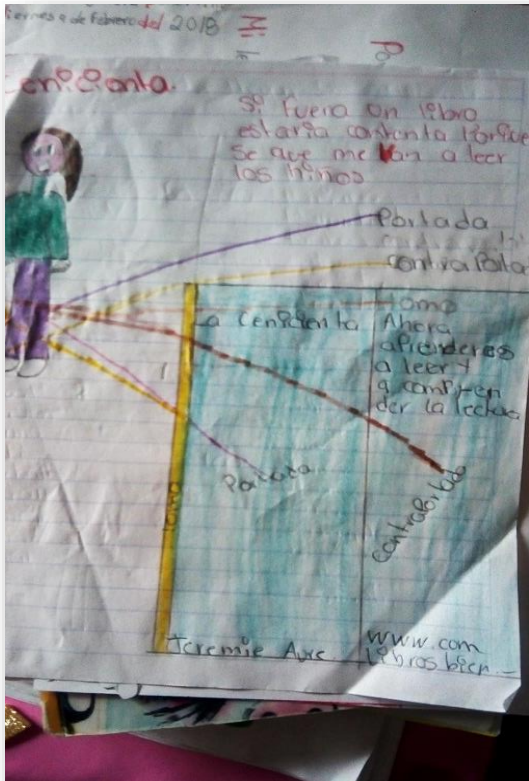 viernes 9 de Febrero del 2018
enicienta.
Si fuera un libro
estaria contenta Porque
se que me van a leer
los niños
Portada
contra Porta
Lomo
La Cenicienta
Ahora
aprenderes
a leer y
a compren
der la lectura
Portada
contraportada
Lomo
Jeremie Aure
www.com
Libros bien